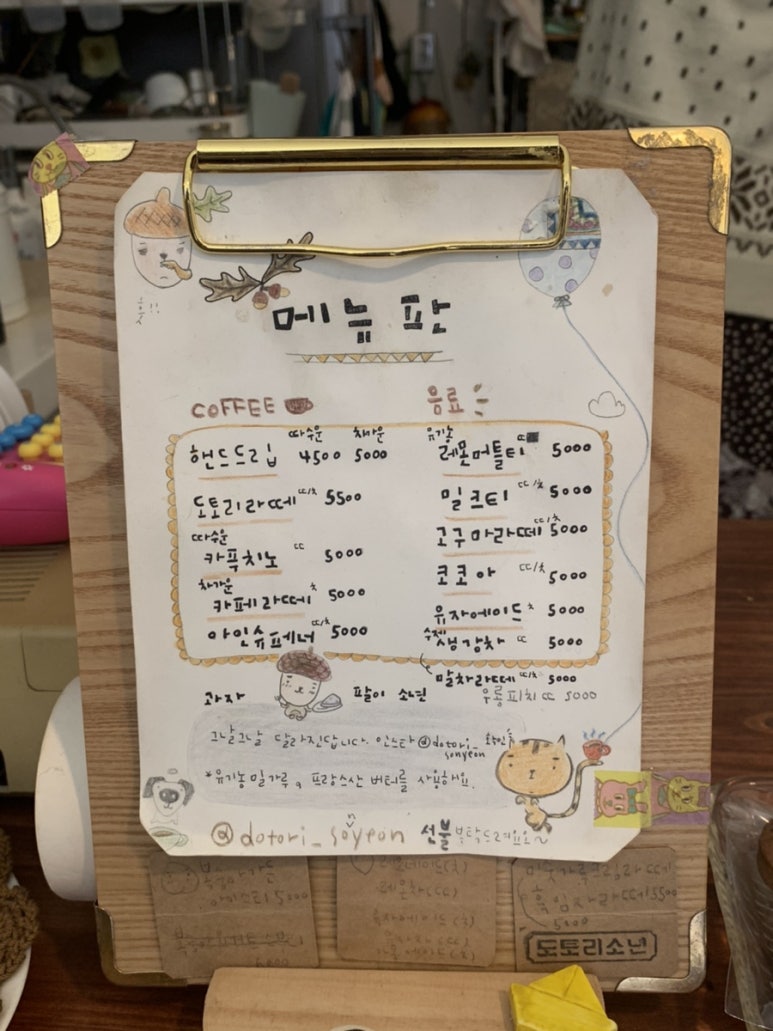 흥!!
메뉴판
COFFEE
따수운 차가운
핸드드립 4500 5000
도토리라떼 따/차 5500
따수운
카푸치노 따 5000
차가운
카페라떼 차 5000
아인슈페너 따/차 5000
음료
유기농
레몬머틀티 따 5000
밀크티 따/차 5000
고구마라떼 따/차 5000
코코아 따/차 5000
유자에이드 차 5000
수제
생강차 따 5000
말차라떼 따/차 5000
우롱피치 따 5000
과자 팔이 소년
그날그날 달라진답니다. 인스타@dotori_sonyeon 확인
*유기농밀가루, 프랑스산 버터를 사용해요.
@dotori_soyeon 선불 부탁드려요~
5000
레몬차(따)
유자에이드(차)
흑임자라떼 5500
5000
도토리소년